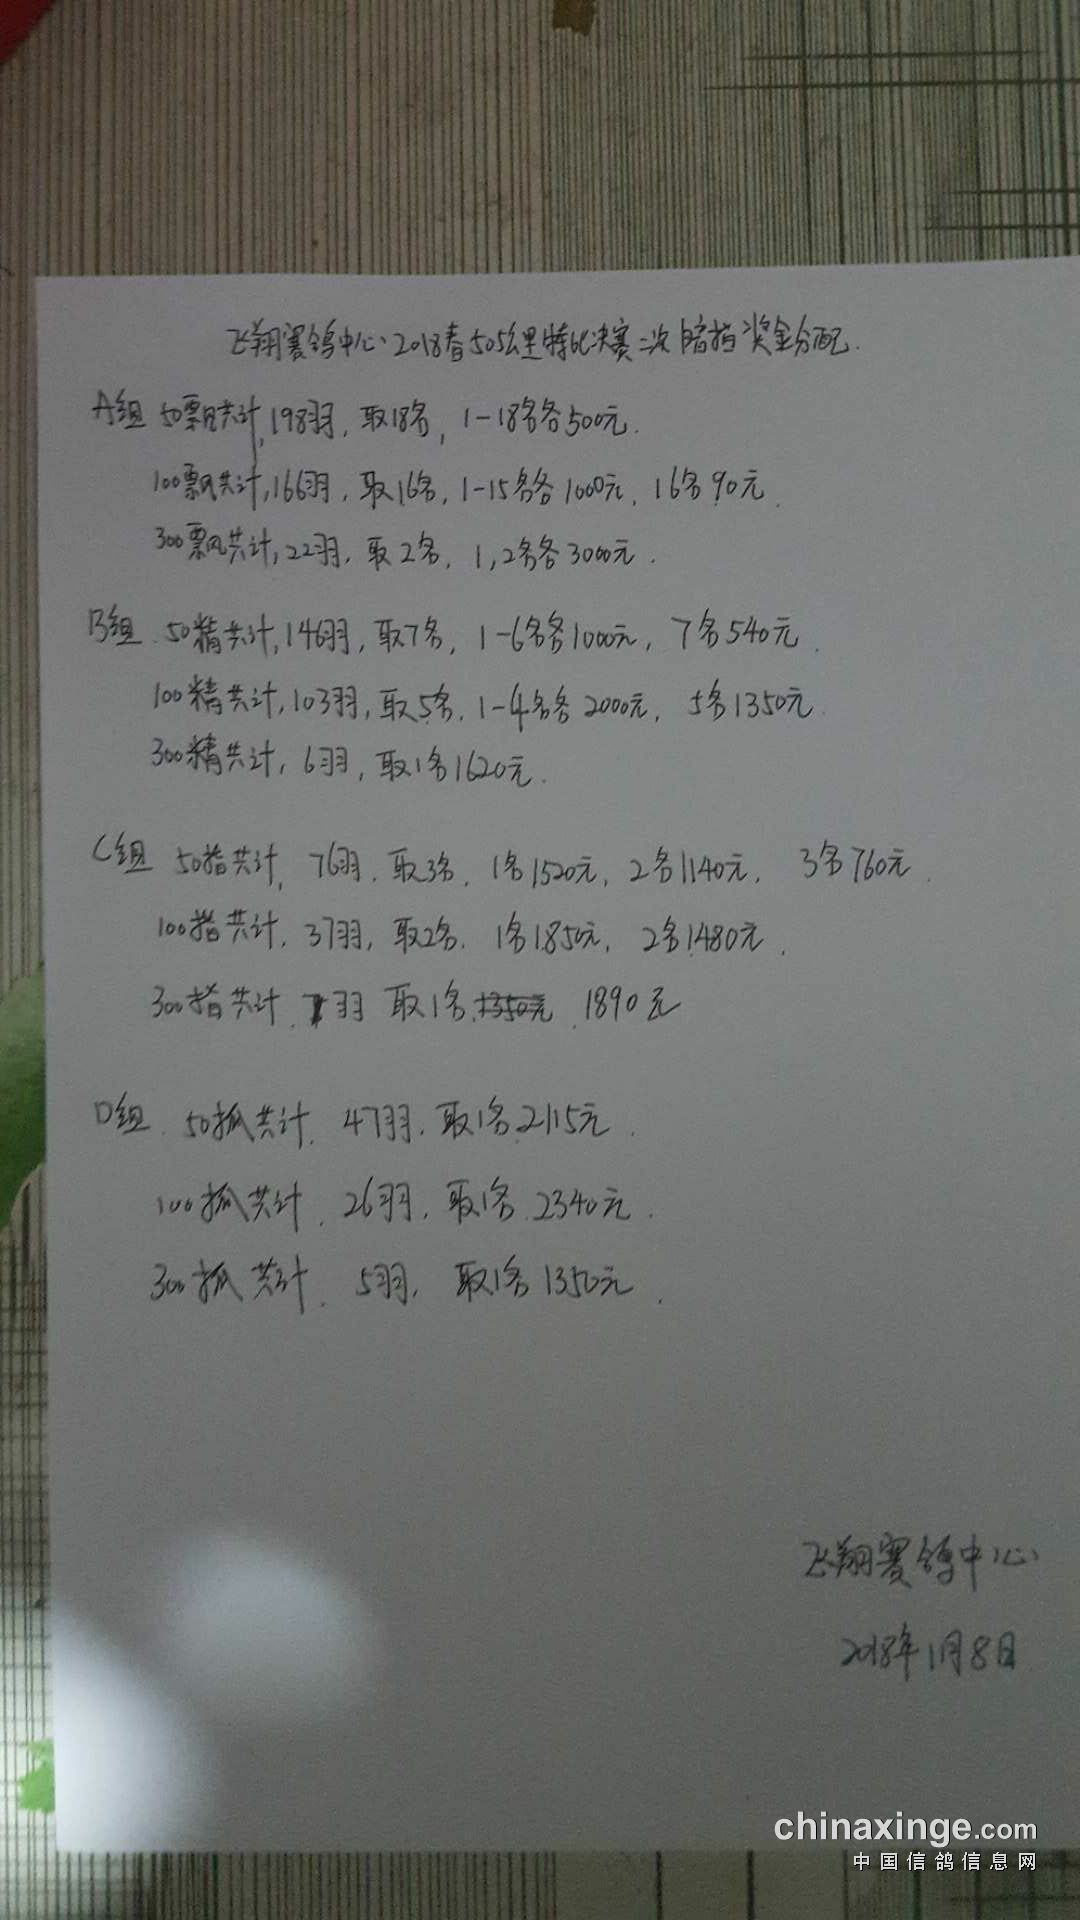 飞翔赛鸽中心2018春505公里特比决赛二次暗插奖金分配.
A组 50飘共计,198羽,取18名,1-18名各500元.
100飘共计,166羽,取16名,1-15名各1000元,16名90元.
300飘共计,22羽,取2名,1,2名各3000元.
B组 50精共计,146羽,取7名,1-6名各1000元,7名540元.
100精共计,103羽,取5名,1-4名各2000元,5名1350元.
300精共计,6羽,取1名1620元.
C组 50指共计,76羽,取3名,1名1520元,2名1140元,3名760元.
100指共计,37羽,取2名.1名1850元,2名1480元.
300指共计.7羽 取1名.1350元.1890元
D组 50抓共计.47羽.取1名2115元.
100抓共计.26羽,取1名.2340元.
300抓共计.5羽,取1名1350元.
飞翔赛鸽中心
2018年1月8日
chinaxinge.com
中国信鸽信息网